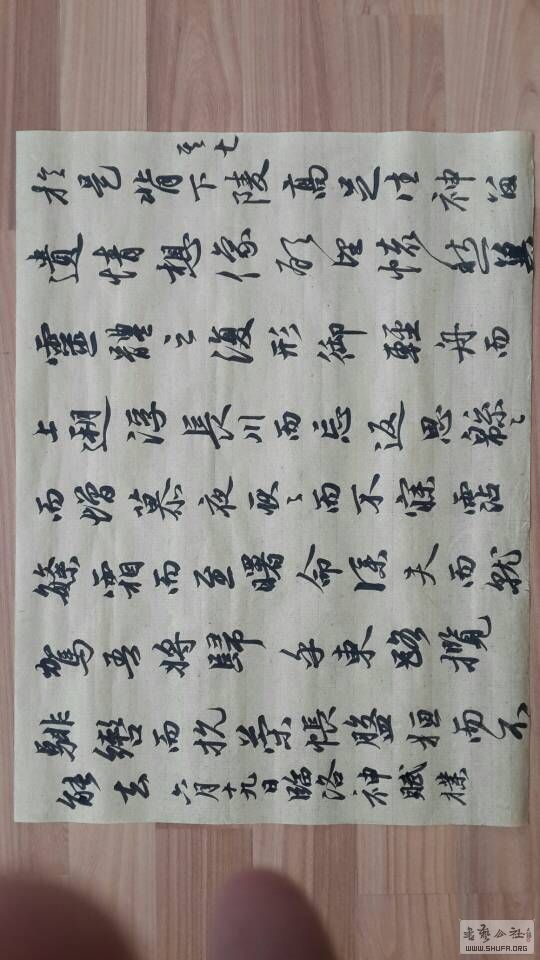 其七
於是背下陵高足往神留
遺情想像顧望懷愁冀
靈體之復形御輕舟而
上遡浮長川而忘返思綿〻
而增慕夜耿〻而不寐霑
繁霜而至曙命僕夫而就
駕吾將歸乎東路攬
騑轡而抗策悵盤桓而不
能去 六月十九日臨洛神賦
书艺公社
WWW.SHUFA.ORG